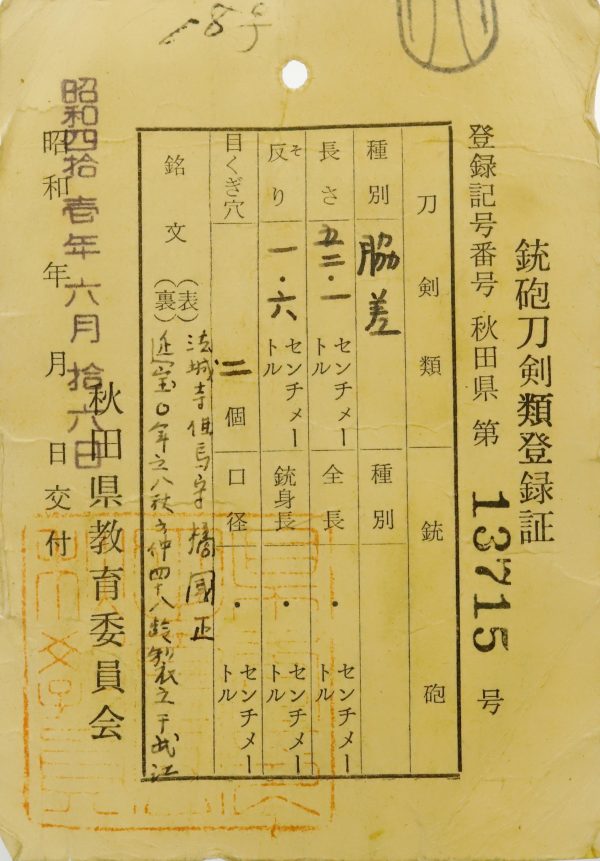 18号
銃砲刀剣類登録証
登録記号番号 秋田県 第 13715 号
刀剣類 銃砲
種別 脇差 種別
長さ 五二・一 センチメートル 全長 ・ センチメートル
反り 一・六 センチメートル 銃身長 ・ センチメートル
そ
目くぎ穴 二 個 口径 ・ センチメートル
銘文
(表) 法城寺但馬守橘國正
(裏) 延宝 年之八秋 仲四十八歳製之于武江
秋田県教育委員会
昭和 年 月 日交付
昭和四拾壱年六月拾六日